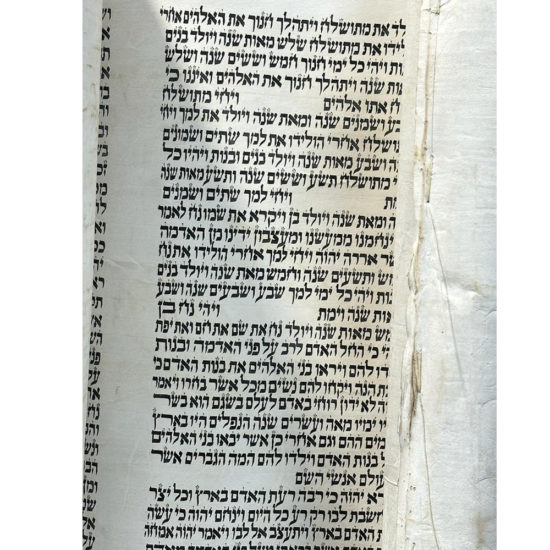 לד את מתושלח ויתהלך חנוך את האלהים אחרי
לידו את מתושלח שלש מאות שנה ויולד בנים
ות ויהי כל ימי חנוך חמש וששים שנה ושלש
ות שנה ויתהלך חנוך את האלהים ואיננו כי
ח אתו אלהים ויחי מתושלח
בע ושמנים שנה ומאת שנה ויולד את למך ויחי
תושלח אחרי הולידו את למך שתים ושמונים
ה ושבע מאות שנה ויולד בנים ובנות ויהיו כל
י מתושלח תשע וששים שנה ותשע מאות שנה
ת ויחי למך שתים ושמנים
ה ומאת שנה ויולד בן ויקרא את שמו נח לאמר
ינחמנו ממעשנו ומעצבון ידינו מן האדמה
שר אררה יהוה ויחי למך אחרי הולידו את נח
מש ותשעים שנה וחמש מאת שנה ויולד בנים
נות ויהי כל ימי למך שבע ושבעים שנה ושבע
אות שנה וימת ויהי נח בן
מש מאות שנה ויולד נח את שם את חם ואת יפת
י כי החל האדם לרב על פני האדמה ובנות
דו להם ויראו בני האלהים את בנות האדם כי
ת הנה ויקחו להם נשים מכל אשר בחרו ויאמר
ה לא ידון רוחי באדם לעלם בשגם הוא בשר
ו ימיו מאה ועשרים שנה הנפלים היו בארץ
מים ההם וגם אחרי כן אשר יבאו בני האלהים
ל בנות האדם וילדו להם המה הגברים אשר
עולם אנשי השם
א יהוה כי רבה רעת האדם בארץ וכל יצר
חשבת לבו רק רע כל היום וינחם יהוה כי עשה
את האדם בארץ ויתעצב אל לבו ויאמר יהוה אמחה